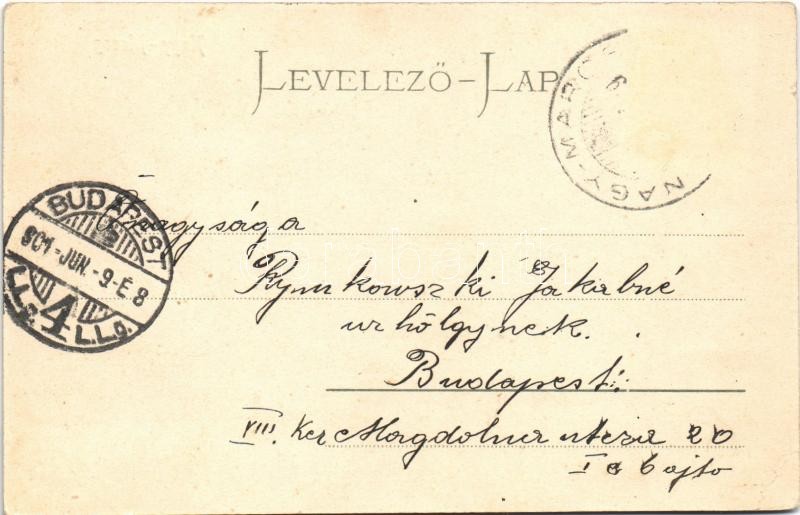 LEVELEZŐ-LAP
NAGY-MAROS
BUDAPEST
901-JUN.-9-É8
4
Őnagysága
Rymkowszki Jakabné
urhölgynek.
Budapest.
VIII. Ker Magdolna utcza 20
I e 6 ajto